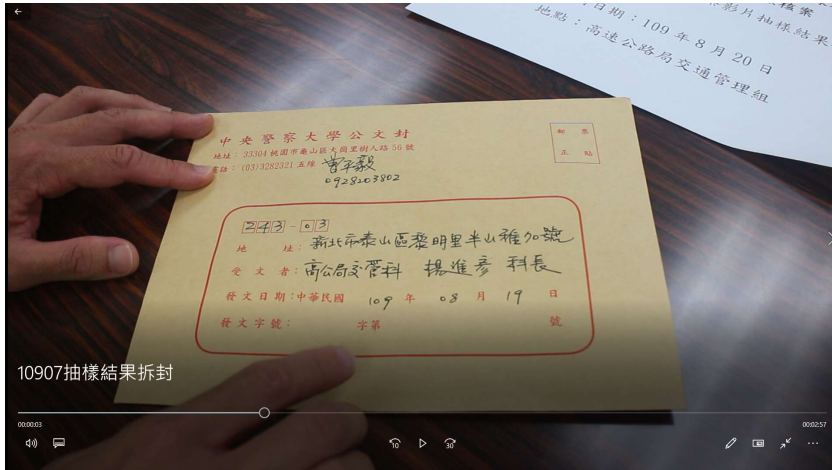 影片抽樣結果
日期：109年8月20日
地點：高速公路局交通管理組
中央警察大學公文封
地址：33304桃園市龜山區大崗里樹人路56號
電話：(03)3282321 五線 曾平毅
0928203802
郵票
正貼
243-03
地址：新北市泰山區黎明里半山雅70號
受文者：高公局交管科 楊進彥 科長
發文日期：中華民國 109年 08月 19日
發文字號： 字第 號
10907抽樣結果拆封
00:00:03
00:02:57
10
30